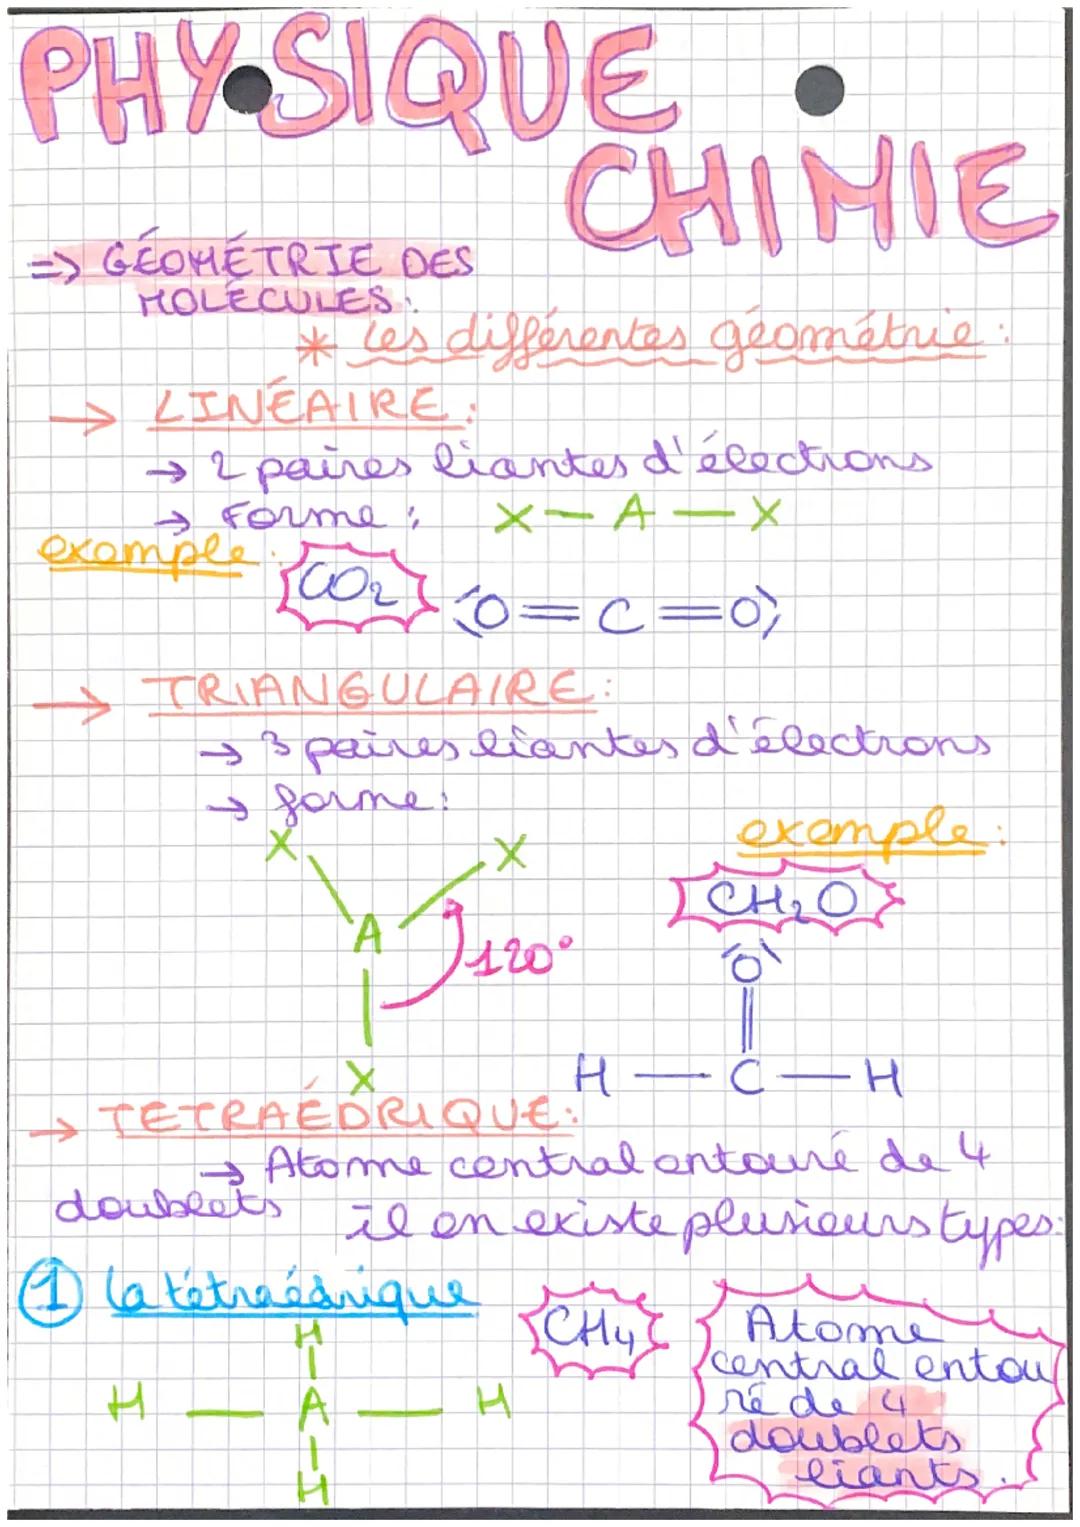 PHYSIQUE
CHIMIE
=> GÉOMÉTRIE DES
MOLÉCULES:
* les différentes géométrie:
→ LINÉAIRE:
→ 2 paires liantes d'électrons
→ Forme: X — A — X
exemple:
CO₂
O = C = O
→ TRIANGULAIRE:
→ 3 paires liantes d'électrons
→ forme:
exemple:
X X
CH₂O
A
120°
O
X
H — C — H
→ TETRAÉDRIQUE:
→ Atome central entouré de 4
doublets il en existe plusieurs types:
① la tétraédrique
CH₄
Atome
central entou
ré de 4
doublets
liants.
H
H — A — H
H